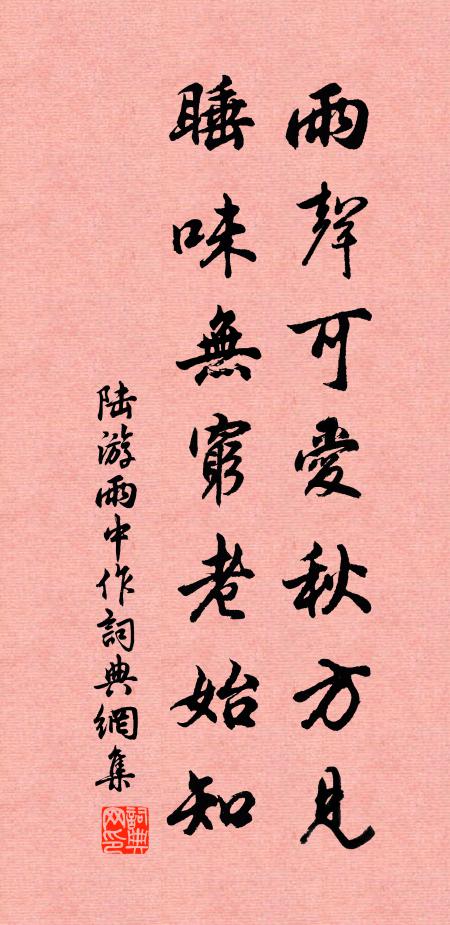 雨聲可愛秋方見
睡味無窮老始知
陆游雨中作詞典網集
詞典网印